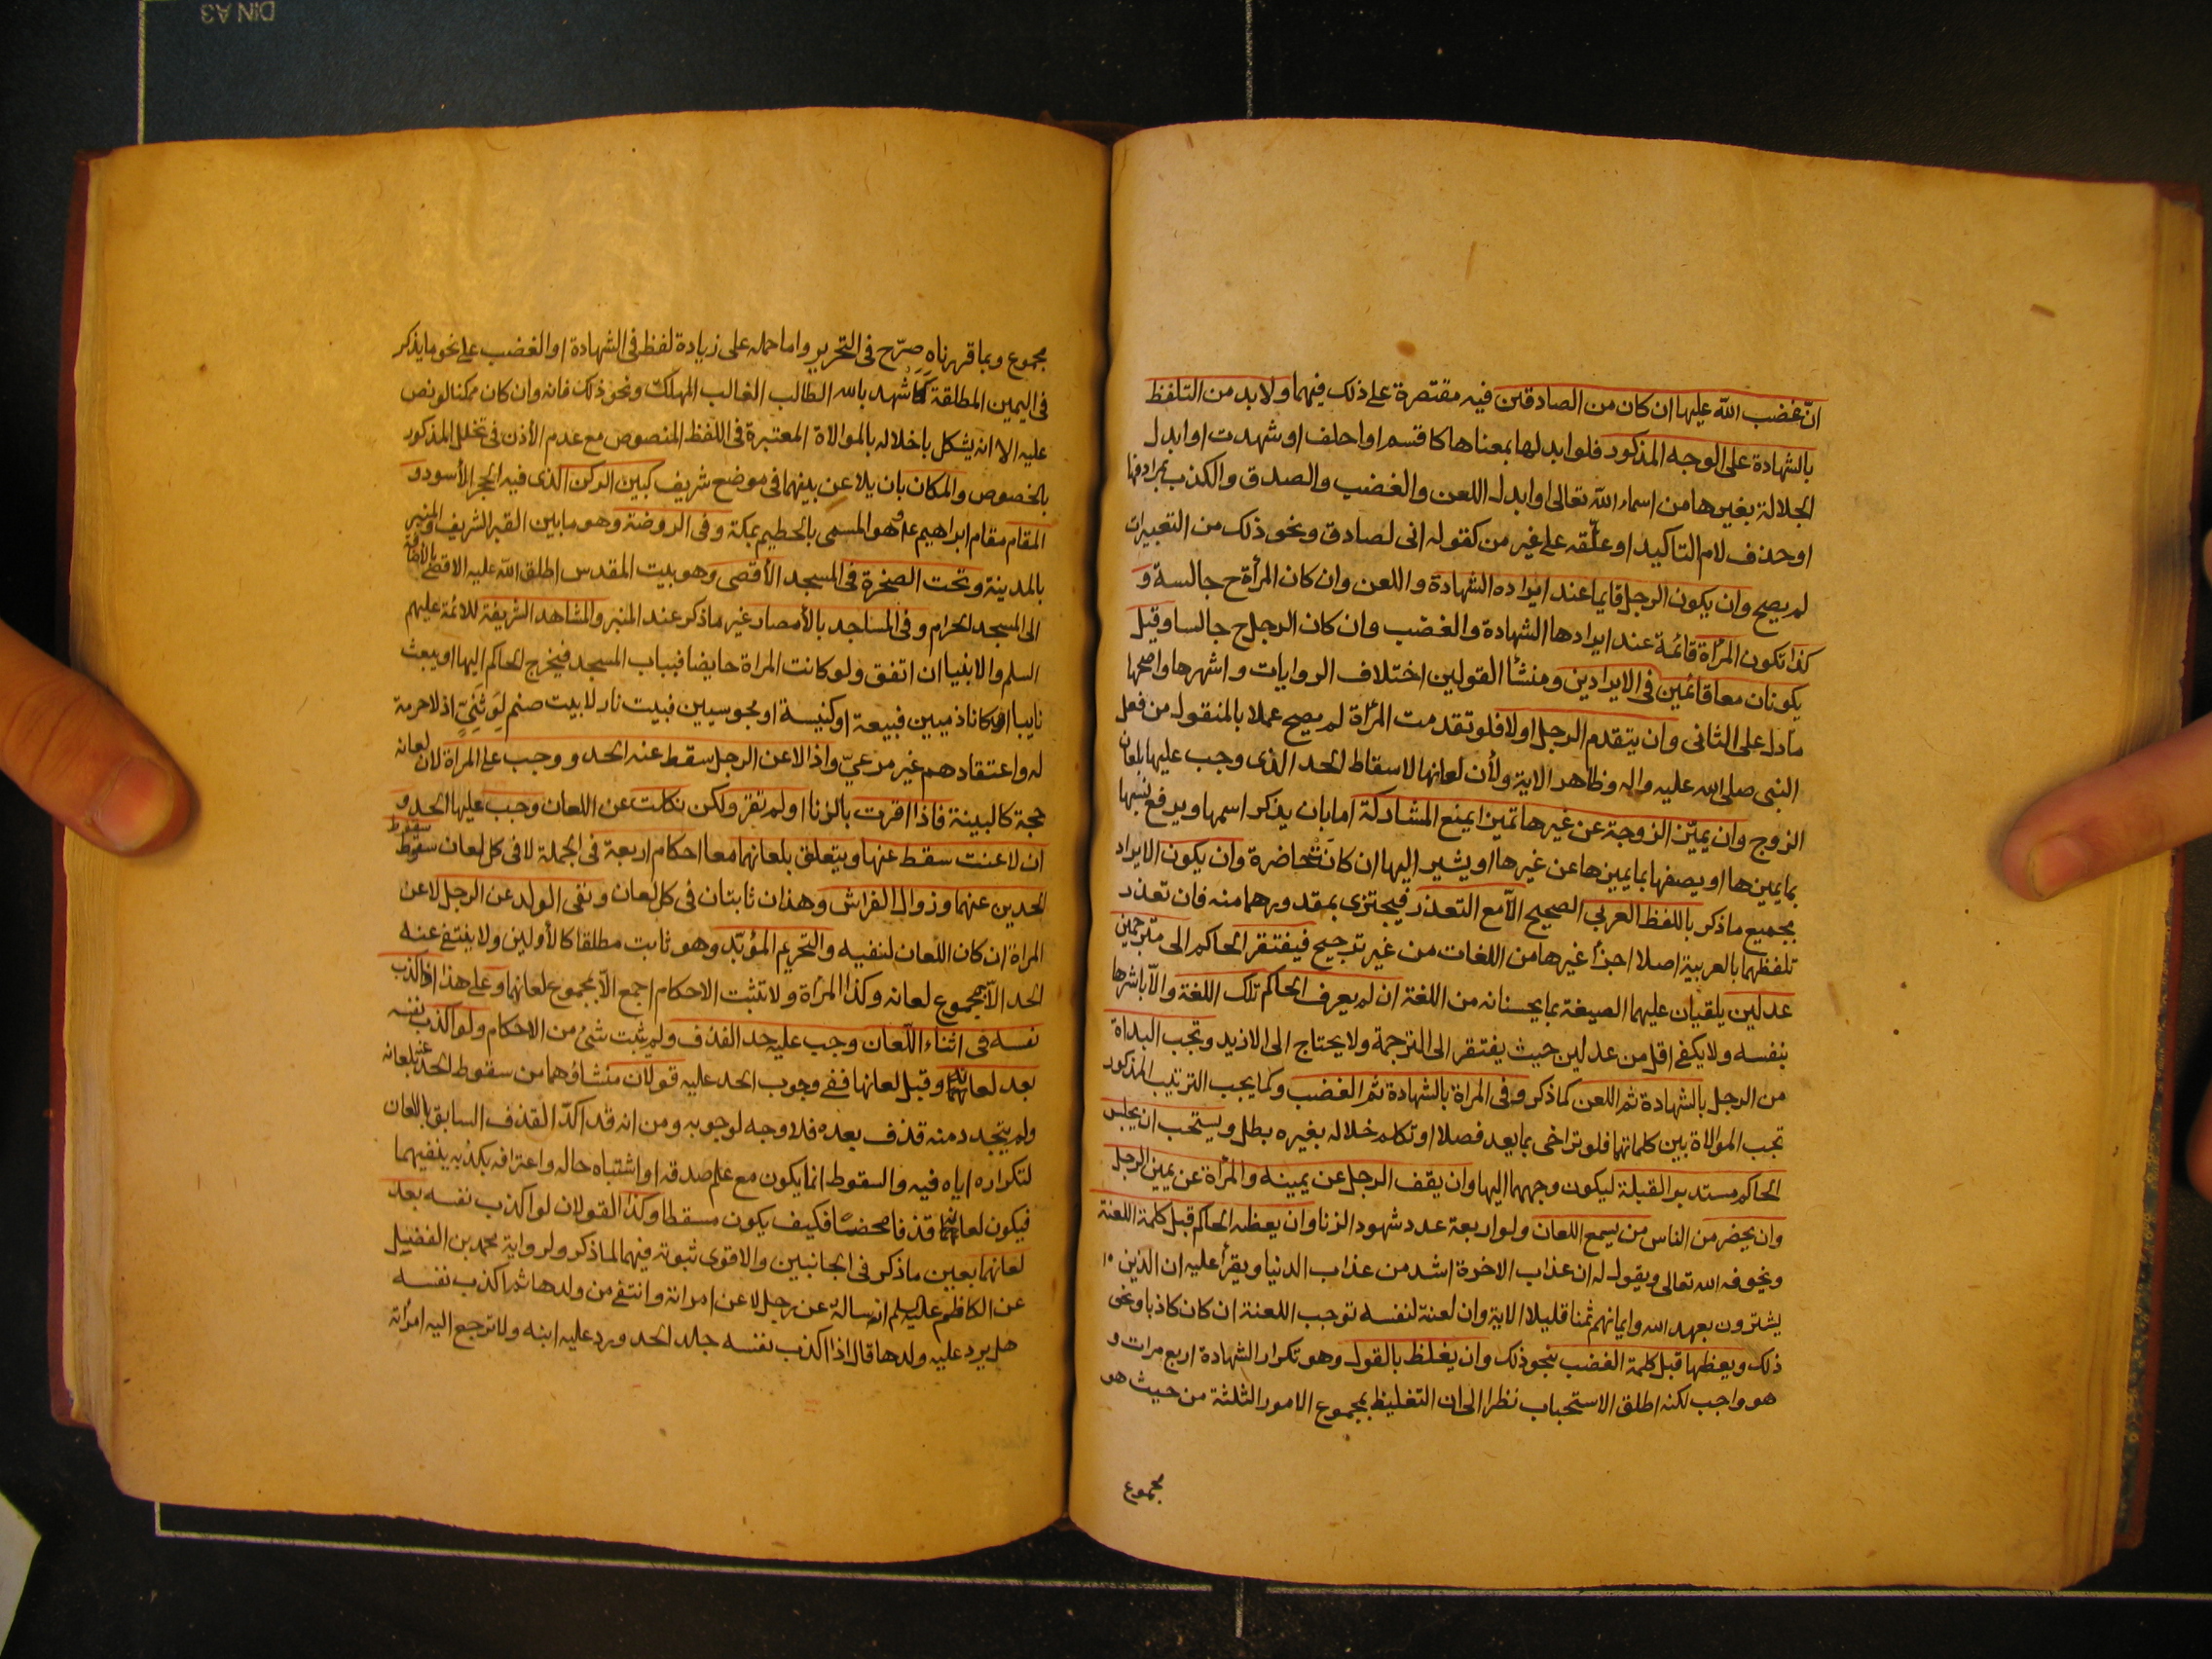 ان غضب الله عليها ان كان من الصادقين فيه مقتصرة على ذلك فيهما ولا بد من التلفظ
بالشهادة على الوجه المذكور فلو ابدلها بمعناها كاقسم او احلف او شهدت او ابدل
الجلالة بغيرها من اسماء الله تعالى او ابدل اللعن والغضب والصدق والكذب بمرادفها
او حذف لام التاكيد او علقه على غير من كقوله انى لصادق ونحو ذلك من التعبيرات
لم يصح وان يكون الرجل قايما عند ايراده الشهادة واللعن وان كان المرأة ح جالسة و
كذا تكون المرأة قائمة عند ايرادها الشهادة والغضب وان كان الرجل ح جالسا وقيل
يكونان معا قائمين فى الايرادين ومنشأ القولين اختلاف الروايات واشهرها واصحها
مادل على الثانى وان يتقدم الرجل اولا فلو تقدمت المرأة لم يصح عملا بالمنقول من فعل
النبى صلى الله عليه واله وظاهر الاية ولأن لعانها لاسقاط الحد الذى وجب عليها بلعان
الزوج وان يميّز الزوجة عن غيرها تميزا يمنع المشاركة اما بان يذكر اسمها ويرفع نسبها
بما يميزها او يصفها بما يميزها عن غيرها او يشير اليها ان كانت حاضرة وان يكون الايراد
بجميع ماذكر باللفظ العربى الصحيح الا مع التعذر فيجتزى بمقدورهما منه فان تعذر
تلفظهما بالعربية اصلا اجزأ غيرها من اللغات من غير ترجيح فيفتقر الحاكم الى مترجمين
عدلين يلقيان عليهما الصيغة بما يحسنانه من اللغة ان لم يعرف الحاكم تلك اللغة والا باشرها
بنفسه ولا يكفى اقل من عدلين حيث يفتقر الى الترجمة ولا يحتاج الى الازيد وتجب البداة
من الرجل بالشهادة ثم اللعن كما ذكر وفى المراة بالشهادة ثم الغضب وكما يجب الترتيب المذكور
تجب الموالاة بين كلماتها فلو تراخى بما يعد فصلا او تكلم خلاله بغيره بطل ويستحب ان يجلس
الحاكم مستدبر القبلة ليكون وجههما اليها وان يقف الرجل عن يمينه والمرأة عن يمين الرجل
وان يحضر من الناس من يسمع اللعان ولو اربعة عدد شهود الزنا وان يعظه الحاكم قبل كلمة اللعنة
ويخوفه الله تعالى ويقول له ان عذاب الاخرة اشد من عذاب الدنيا ويقرأ عليه ان الذين
يشترون بعهد الله وايمانهم ثمنا قليلا الاية وان لعنة لنفسه توجب اللعنة ان كان كاذبا ونحو
ذلك ويعظها قبل كلمة الغضب بنحو ذلك وان يغلظ بالقول وهو تكرار الشهادة اربع مرات و
هو واجب لكنه اطلق الاستحباب نظرا الى ان التغليظ بمجموع الامور الثلثة من حيث هو
مجموع
مجموع وبما قررناه صرّح فى التحرير واما حمله على زيادة لفظ فى الشهادة او الغضب على نحو ما يذكر
فى اليمين المطلقة كاشهد بالله الطالب الغالب المهلك ونحو ذلك فانه وان كان ممكنا لو نص
عليه الا انه يشكل باخلاله بالموالاة المعتبرة فى اللفظ المنصوص مع عدم الأذن فى تخلل المذكور
بالخصوص والمكان بان يلاعن بينهما فى موضع شريف كبين الركن الذى فيه الحجر الأسود و
المقام مقام ابراهيم ع وهو المسمى بالحطيم بمكة وفى الروضة وهو ما بين القبر الشريف والمنبر
بالمدينة وتحت الصخرة فى المسجد الأقصى وهو بيت المقدس اطلق الله عليه الاقصى بالاضافة
الى المسجد الحرام وفى المساجد بالأمصار غير ماذكر عند المنبر والمشاهد الشريفة للائمة عليهم
السلم والانبيا ان اتفق ولو كانت المراة حايضا فبباب المسجد فيخرج الحاكم اليها او يبعث
نايبا او كانا ذميين فبيعة او كنيسة او مجوسيين فبيت نار لا بيت صنم لوثنىّ اذ لا حرمة
له واعتقادهم غير مرعىّ واذا لاعن الرجل سقط عنه الحد ووجب على المراة لان لعانه
حجة كالبينة فاذا اقرت بالزنا او لم تقر ولكن نكلت عن اللعان وجب عليها الحد و
ان لاعنت سقط عنها ويتعلق بلعانهما معا احكام اربعة فى الجملة لا فى كل لعان سقوط
الحدين عنهما وزوال الفراش وهذان ثابتان فى كل لعان ونفى الولد عن الرجل لا عن
المراة ان كان اللعان لنفيه والتحريم المؤبّد وهو ثابت مطلقا كالأولين ولا ينتفى عنه
الحد الا بمجموع لعانه وكذا المرأة ولا تثبت الاحكام اجمع الا بمجموع لعانهما وعلى هذا لو اكذب
نفسه فى اثناء اللعان وجب عليه حد القذف ولم يثبت شئ من الاحكام ولو اكذب نفسه
بعد لعانه وقبل لعانها ففى وجوب الحد عليه قولان منشاؤهما من سقوط الحد عنه بلعانه
ولم يتجدد منه قذف بعده فلا وجه لوجوبه ومن انه قد اكدّ القذف السابق باللعان
لتكراره اياه فيه والسقوط انما يكون مع علم صدقه او اشتباه حاله واعترافه بكذبه ينفيهما
فيكون لعانه قذفا محضا فكيف يكون مسقطا وكذا القولان لو اكذب نفسه بعد
لعانهما بعين ماذكر فى الجانبين والاقوى ثبوته فيهما لما ذكر ولرواية محمد بن الفضيل
عن الكاظم عليه السلم انه ساله عن رجل لاعن امراته وانتفى من ولدها ثم اكذب نفسه
هل يرد عليه ولدها قال اذا اكذب نفسه جلد الحد ورد عليه ابنه ولا ترجع اليه امرأته
DIN A3